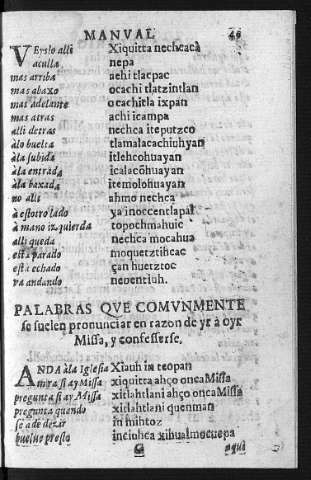 MANVAL 46
VEyslo alli Xiquitta nechcacà
aculla nepa
mas arriba achi tlacpac
mas abaxo ocachi tlatzintlan
mas adelante ocachitla ixpan
mas atras achi icampa
alli detras nechca iteputzco
àlo buelta tlamalacachiuhyan
àla subida itlehcohuayan
àla entrada icalacohuayan
àla baxada itemolohuayan
no alli ahmo nechca
à estotro lado ya inoccentlapal
à mano izquierda topochmahuic
alli queda nechca mocahua
està parado moquetztificac
està echado çan huetztoc
va andando nenentiuh.
PALABRAS QVE COMVNMENTE
se suelen pronunciar en razon de yr à oyr
Missa, y confesserse.
ANDA àla Iglesia Xiauh in teopan
mira si ay Missa xiquitta ahço onca Missa
pregunta si ay Missa xitlahtlani ahço onca Missa
pregunta quando xitlahtlani quenman
se à de dezir in mihtoz
buelue presto inciuhca xihualmocuepa
aqui